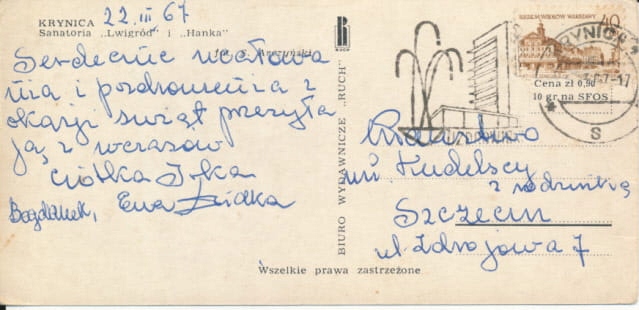 22.III.67
KRYNICA
Sanatoria „Lwigród" i „Hanka"
fot. S. Arczyński
Serdecznie ucałowa
nia i pozdrowienia z
okazji świąt przesyła
ją z wczasów
Ciotka Irka
Bogdanek, Ewa Zridka
BIURO WYDAWNICZE „RUCH"
RUCH
SIEDEM WIEKÓW WARSZAWY
40
Cena zł 0,90
10 gr na SFOS
KRYNICA 2
S
Państwo
Kudelscy
z rodzinką
Szczecin
ul. Zdrojowa 7
Wszelkie prawa zastrzeżone